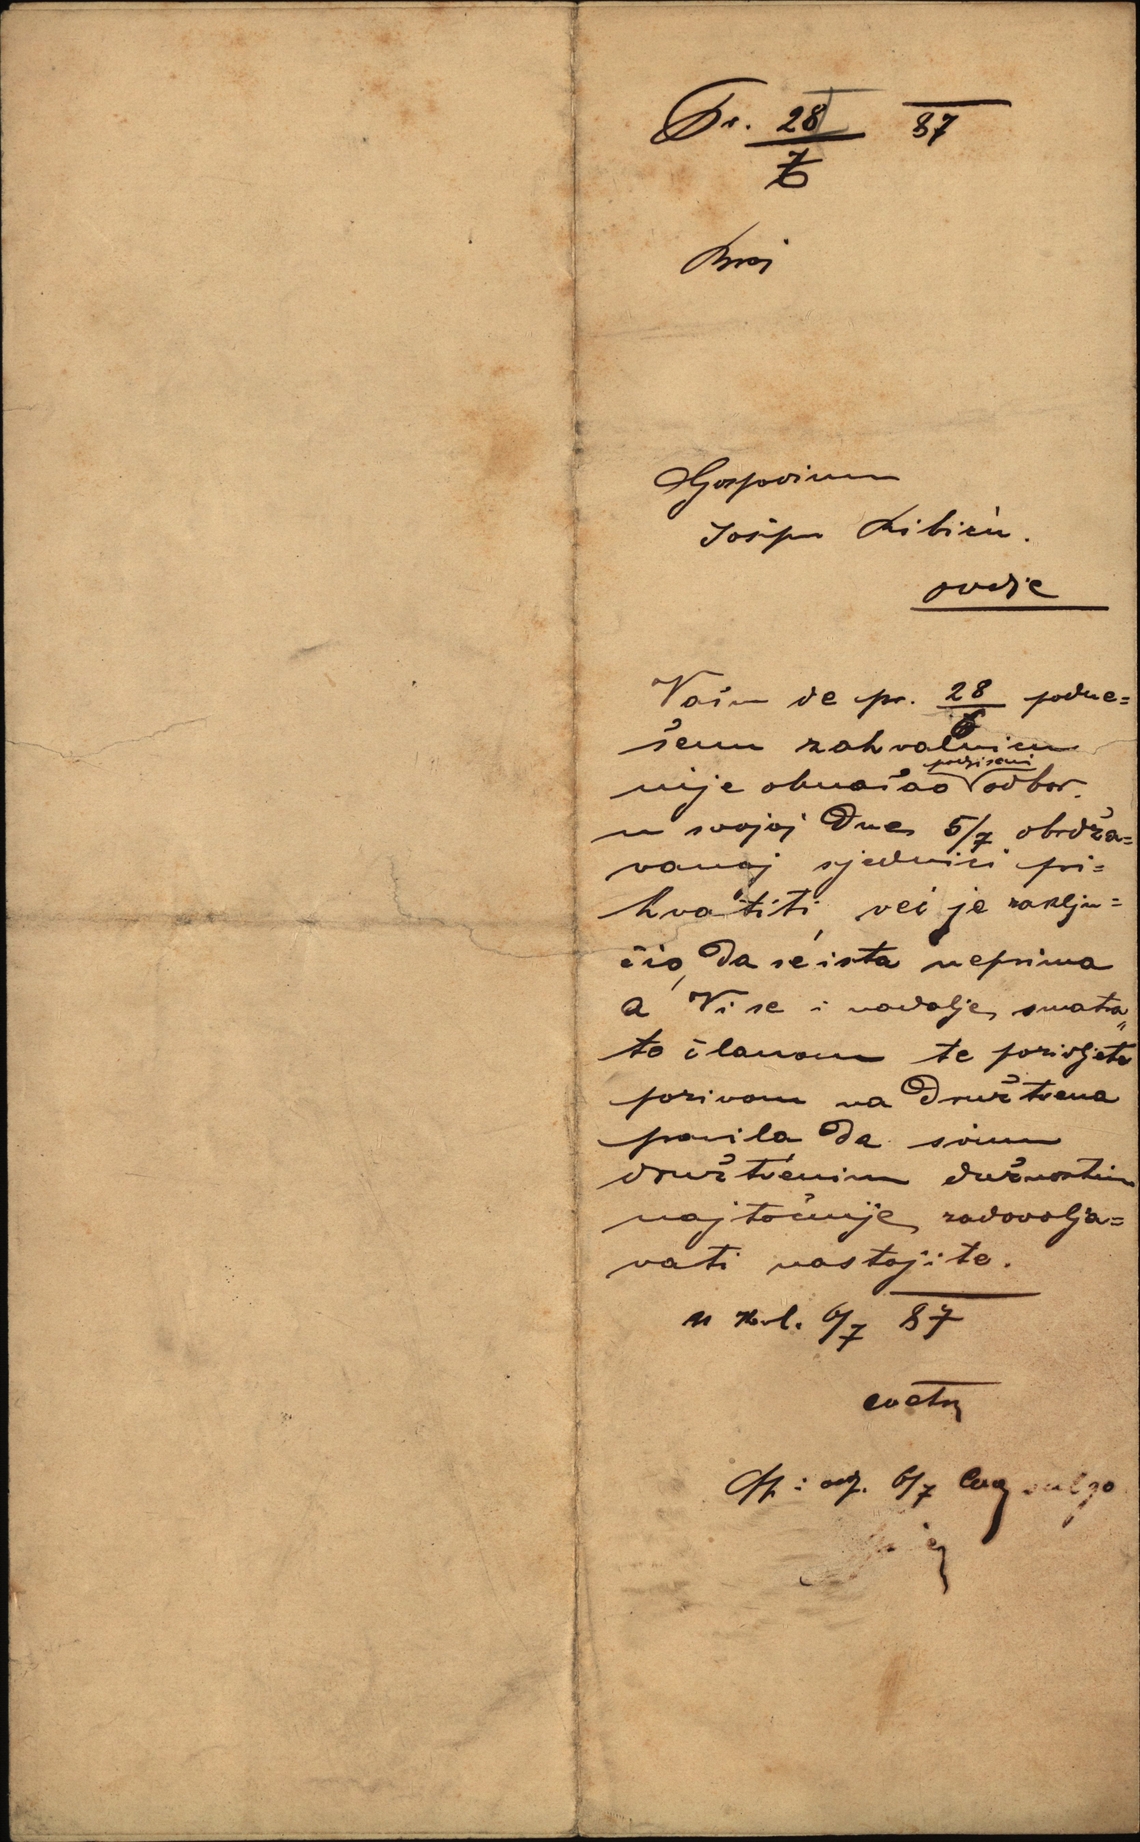 Pr. 28/7 87
Broj
Gospodinu
Josipu Ribiću.
ovdje
Vašu de pr. 28/6 podne=
šenu zahvalnicu
nije obnašao podpisani odbor
u svojoj dne 5/7 obdrža=
vanoj sjednici pri=
hvatiti već je zaklju=
čio, da se ista neprima
a Vi se i nadalje smatra„
te članom te pozivljete
pozivom na družtvena
pravila da svim
družtvenim dužnostim
najtočnije zadovolja=
vati nastojite.
6/7 87
6/7